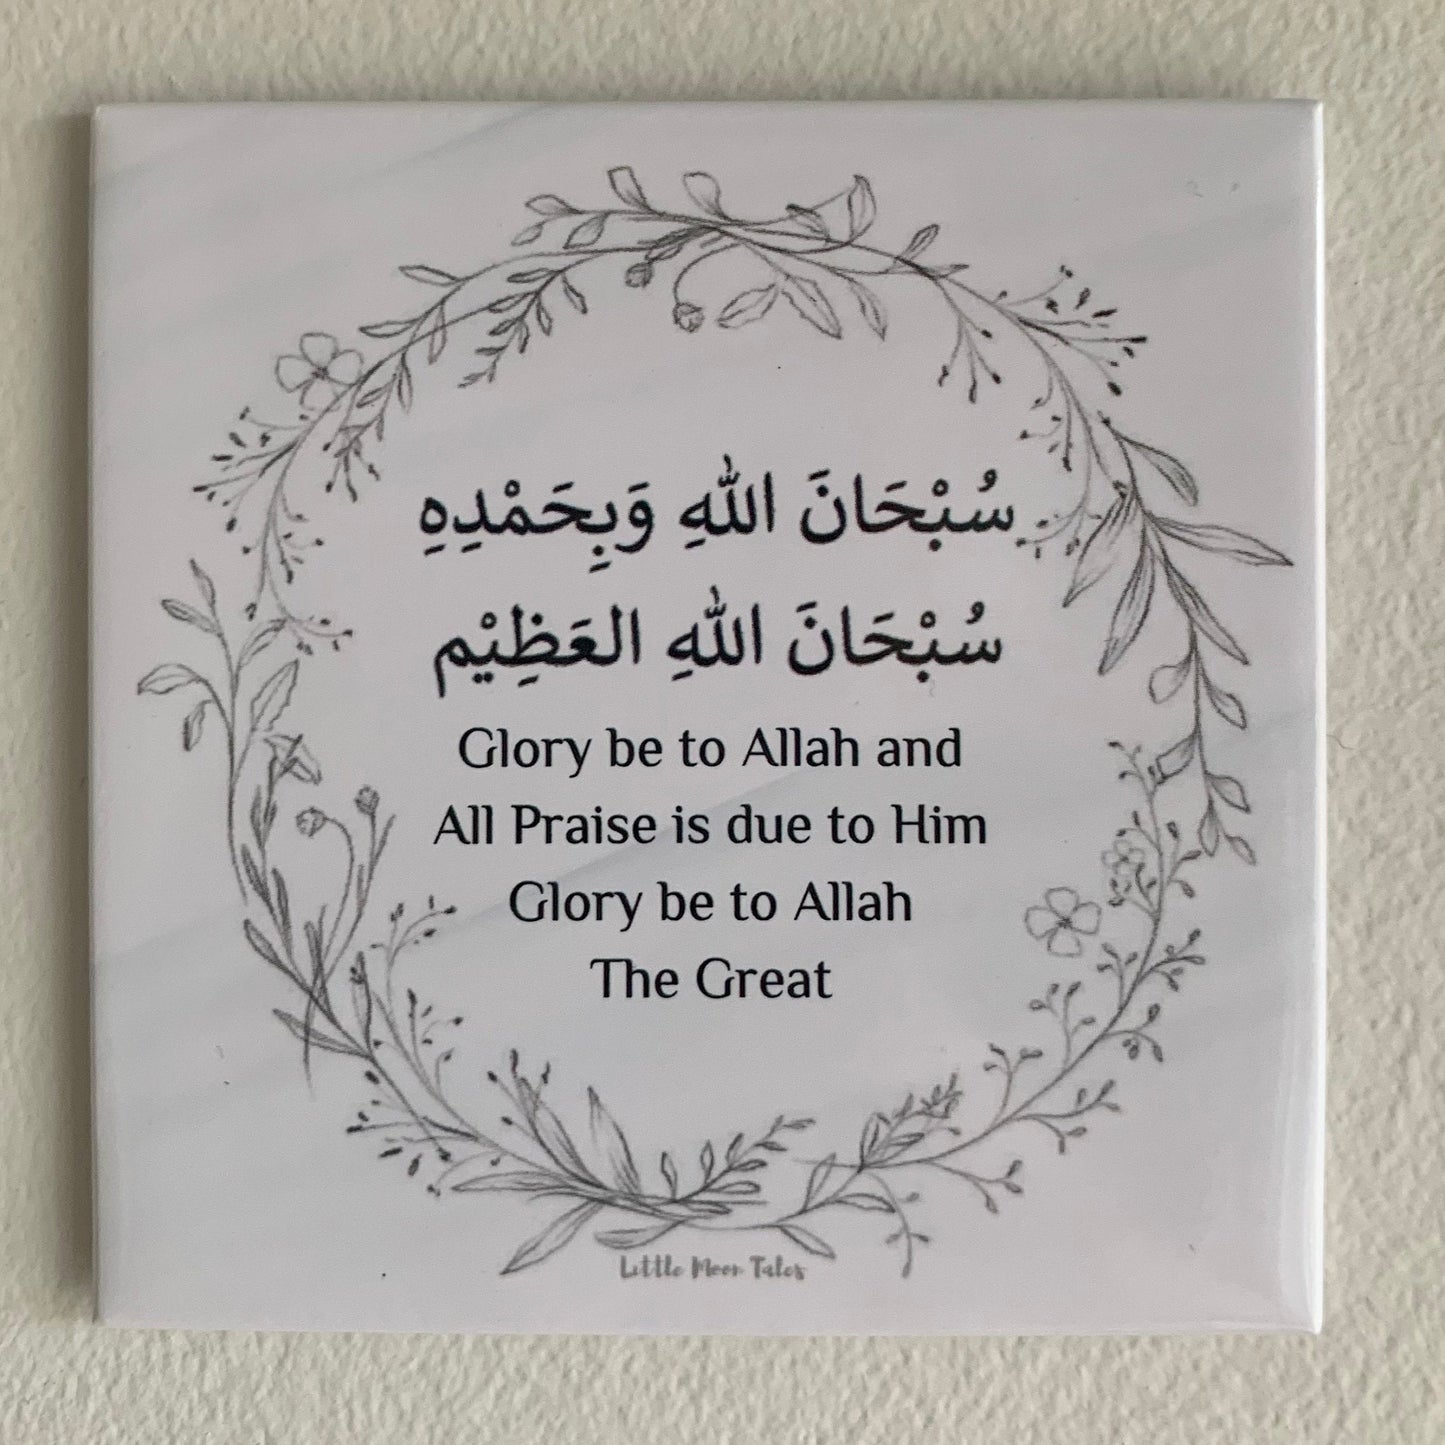 سُبْحَانَ اللّٰهِ وَبِحَمْدِهِ
سُبْحَانَ اللّٰهِ العَظِيْم
Glory be to Allah and
All Praise is due to Him
Glory be to Allah
The Great
Little Moon Tales